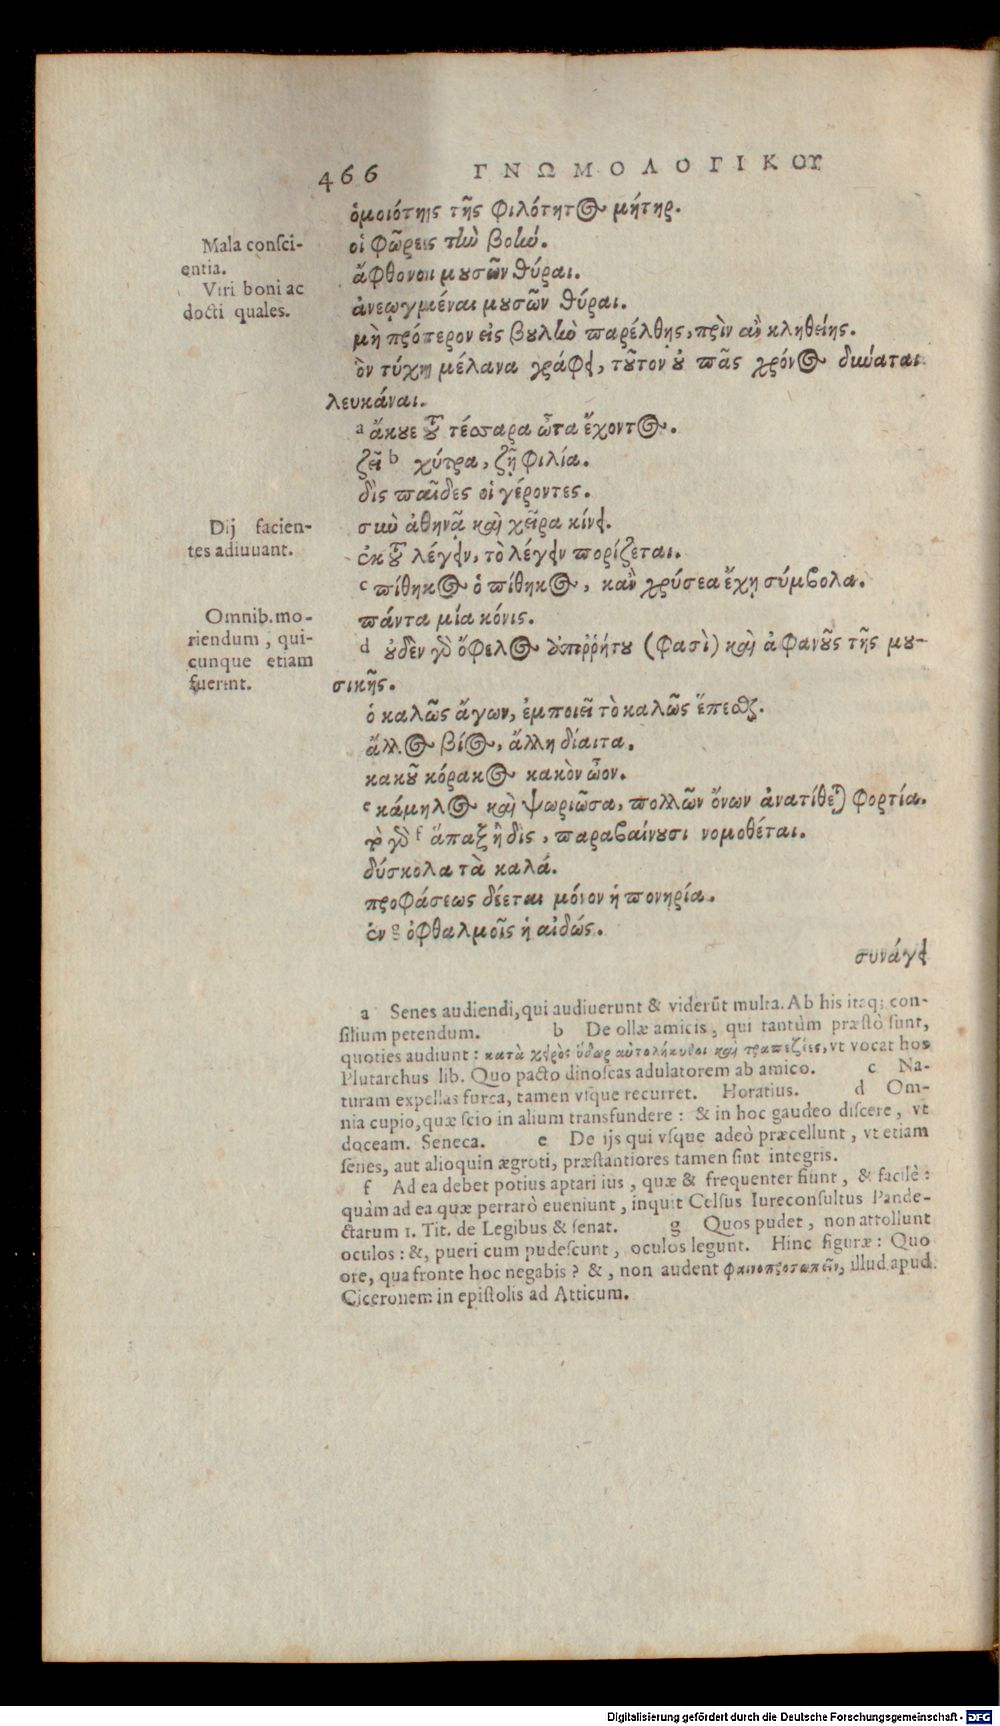 466 ΓΝΩΜΟΛΟΓΙΚΟΥ
ὁμοιότης τῆς φιλότητος μήτηρ.
Mala consci-
entia.
οἱ φῶρες τὴν βοήν.
Viri boni ac
docti quales.
ἄφθονοι μουσῶν θύραι.
ἀνεῳγμέναι μουσῶν θύραι.
μὴ πρότερον εἰς βουλὴν παρέλθῃς, πρὶν ἂν κληθείης.
ὃν τύχη μέλανα γράψει, τοῦτον οὐ πᾶς χρόνος δύναται
λευκάναι.
a ἄκουε τοῦ τέσσαρα ὦτα ἔχοντος.
ζεῖ b χύτρα, ζῇ φιλία.
δὶς παῖδες οἱ γέροντες.
Dij facien-
tes adiuuant.
σὺν ἀθηνᾷ καὶ χεῖρα κίνει.
ἐκ τοῦ λέγειν, τὸ λέγειν πορίζεται.
c πίθηκος ὁ πίθηκος, κἂν χρύσεα ἔχῃ σύμβολα.
Omnib. mo-
riendum, qui-
cunque etiam
fuerint.
πάντα μία κόνις.
d οὐδὲν γὸ ὄφελος ἀπορρήτου (φασὶ) καὶ ἀφανοῦς τῆς μου-
σικῆς.
ὁ καλῶς ἄγων, ἐμποιεῖ τὸ καλῶς ἕπεσθαι.
ἄλλος βίος, ἄλλη δίαιτα.
κακοῦ κόρακος κακὸν ὦον.
e κάμηλος καὶ ψωριῶσα, πολλῶν ὄνων ἀνατίθεται φορτία.
τὸ γὸ f ἅπαξ ἢ δὶς, παραβαίνουσι νομοθέται.
δύσκολα τὰ καλά.
προφάσεως δέεται μόνον ἡ πονηρία.
ἐν g ὀφθαλμοῖς ἡ αἰδώς.
συνάγει
a Senes audiendi, qui audiuerunt & viderūt multa. Ab his itaq; con-
silium petendum. b De ollæ amicis, qui tantùm præstò sunt,
quoties audiunt: κατὰ χειρὸς ὕδωρ αὐτολήκυθοι καὶ τραπεζίες, vt vocat hos
Plutarchus lib. Quo pacto dinoscas adulatorem ab amico. c Na-
turam expellas furca, tamen vsque recurret. Horatius. d Om-
nia cupio, quæ scio in alium transfundere: & in hoc gaudeo discere, vt
doceam. Seneca. e De ijs qui vsque adeò præcellunt, vt etiam
senes, aut alioquin ægroti, præstantiores tamen sint integris.
f Ad ea debet potius aptari ius, quæ & frequenter fiunt, & facilè:
quàm ad ea quæ perrarò eueniunt, inquit Celsus Iureconsultus Pande-
ctarum 1. Tit. de Legibus & senat. g Quos pudet, non attollunt
oculos: &, pueri cum pudescunt, oculos legunt. Hinc figuræ: Quo
ore, qua fronte hoc negabis? &, non audent φαινοπροσωπεῖν, illud apud
Ciceronem in epistolis ad Atticum.
Digitalisierung gefördert durch die Deutsche Forschungsgemeinschaft - DFG